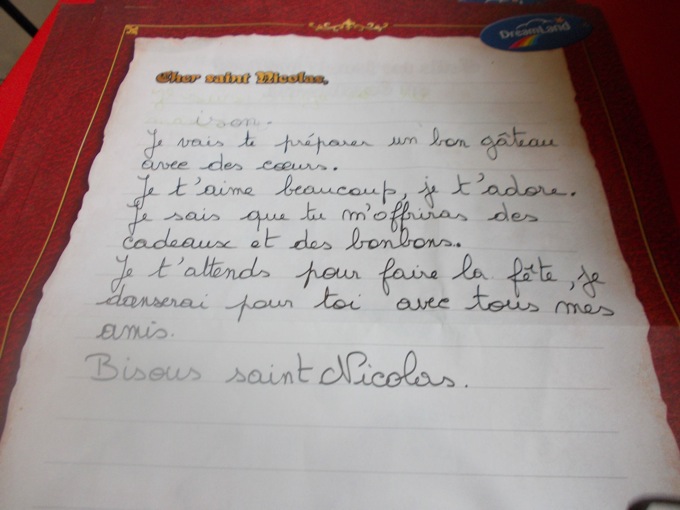 DreamLand
Cher saint Nicolas,
ison.
Je vais te préparer un bon gâteau
avec des cœurs.
Je t'aime beaucoup, je t'adore.
Je sais que tu m'offriras des
cadeaux et des bonbons.
Je t'attends pour faire la fête, je
danserai pour toi avec tous mes
amis.
Bisous saint Nicolas.